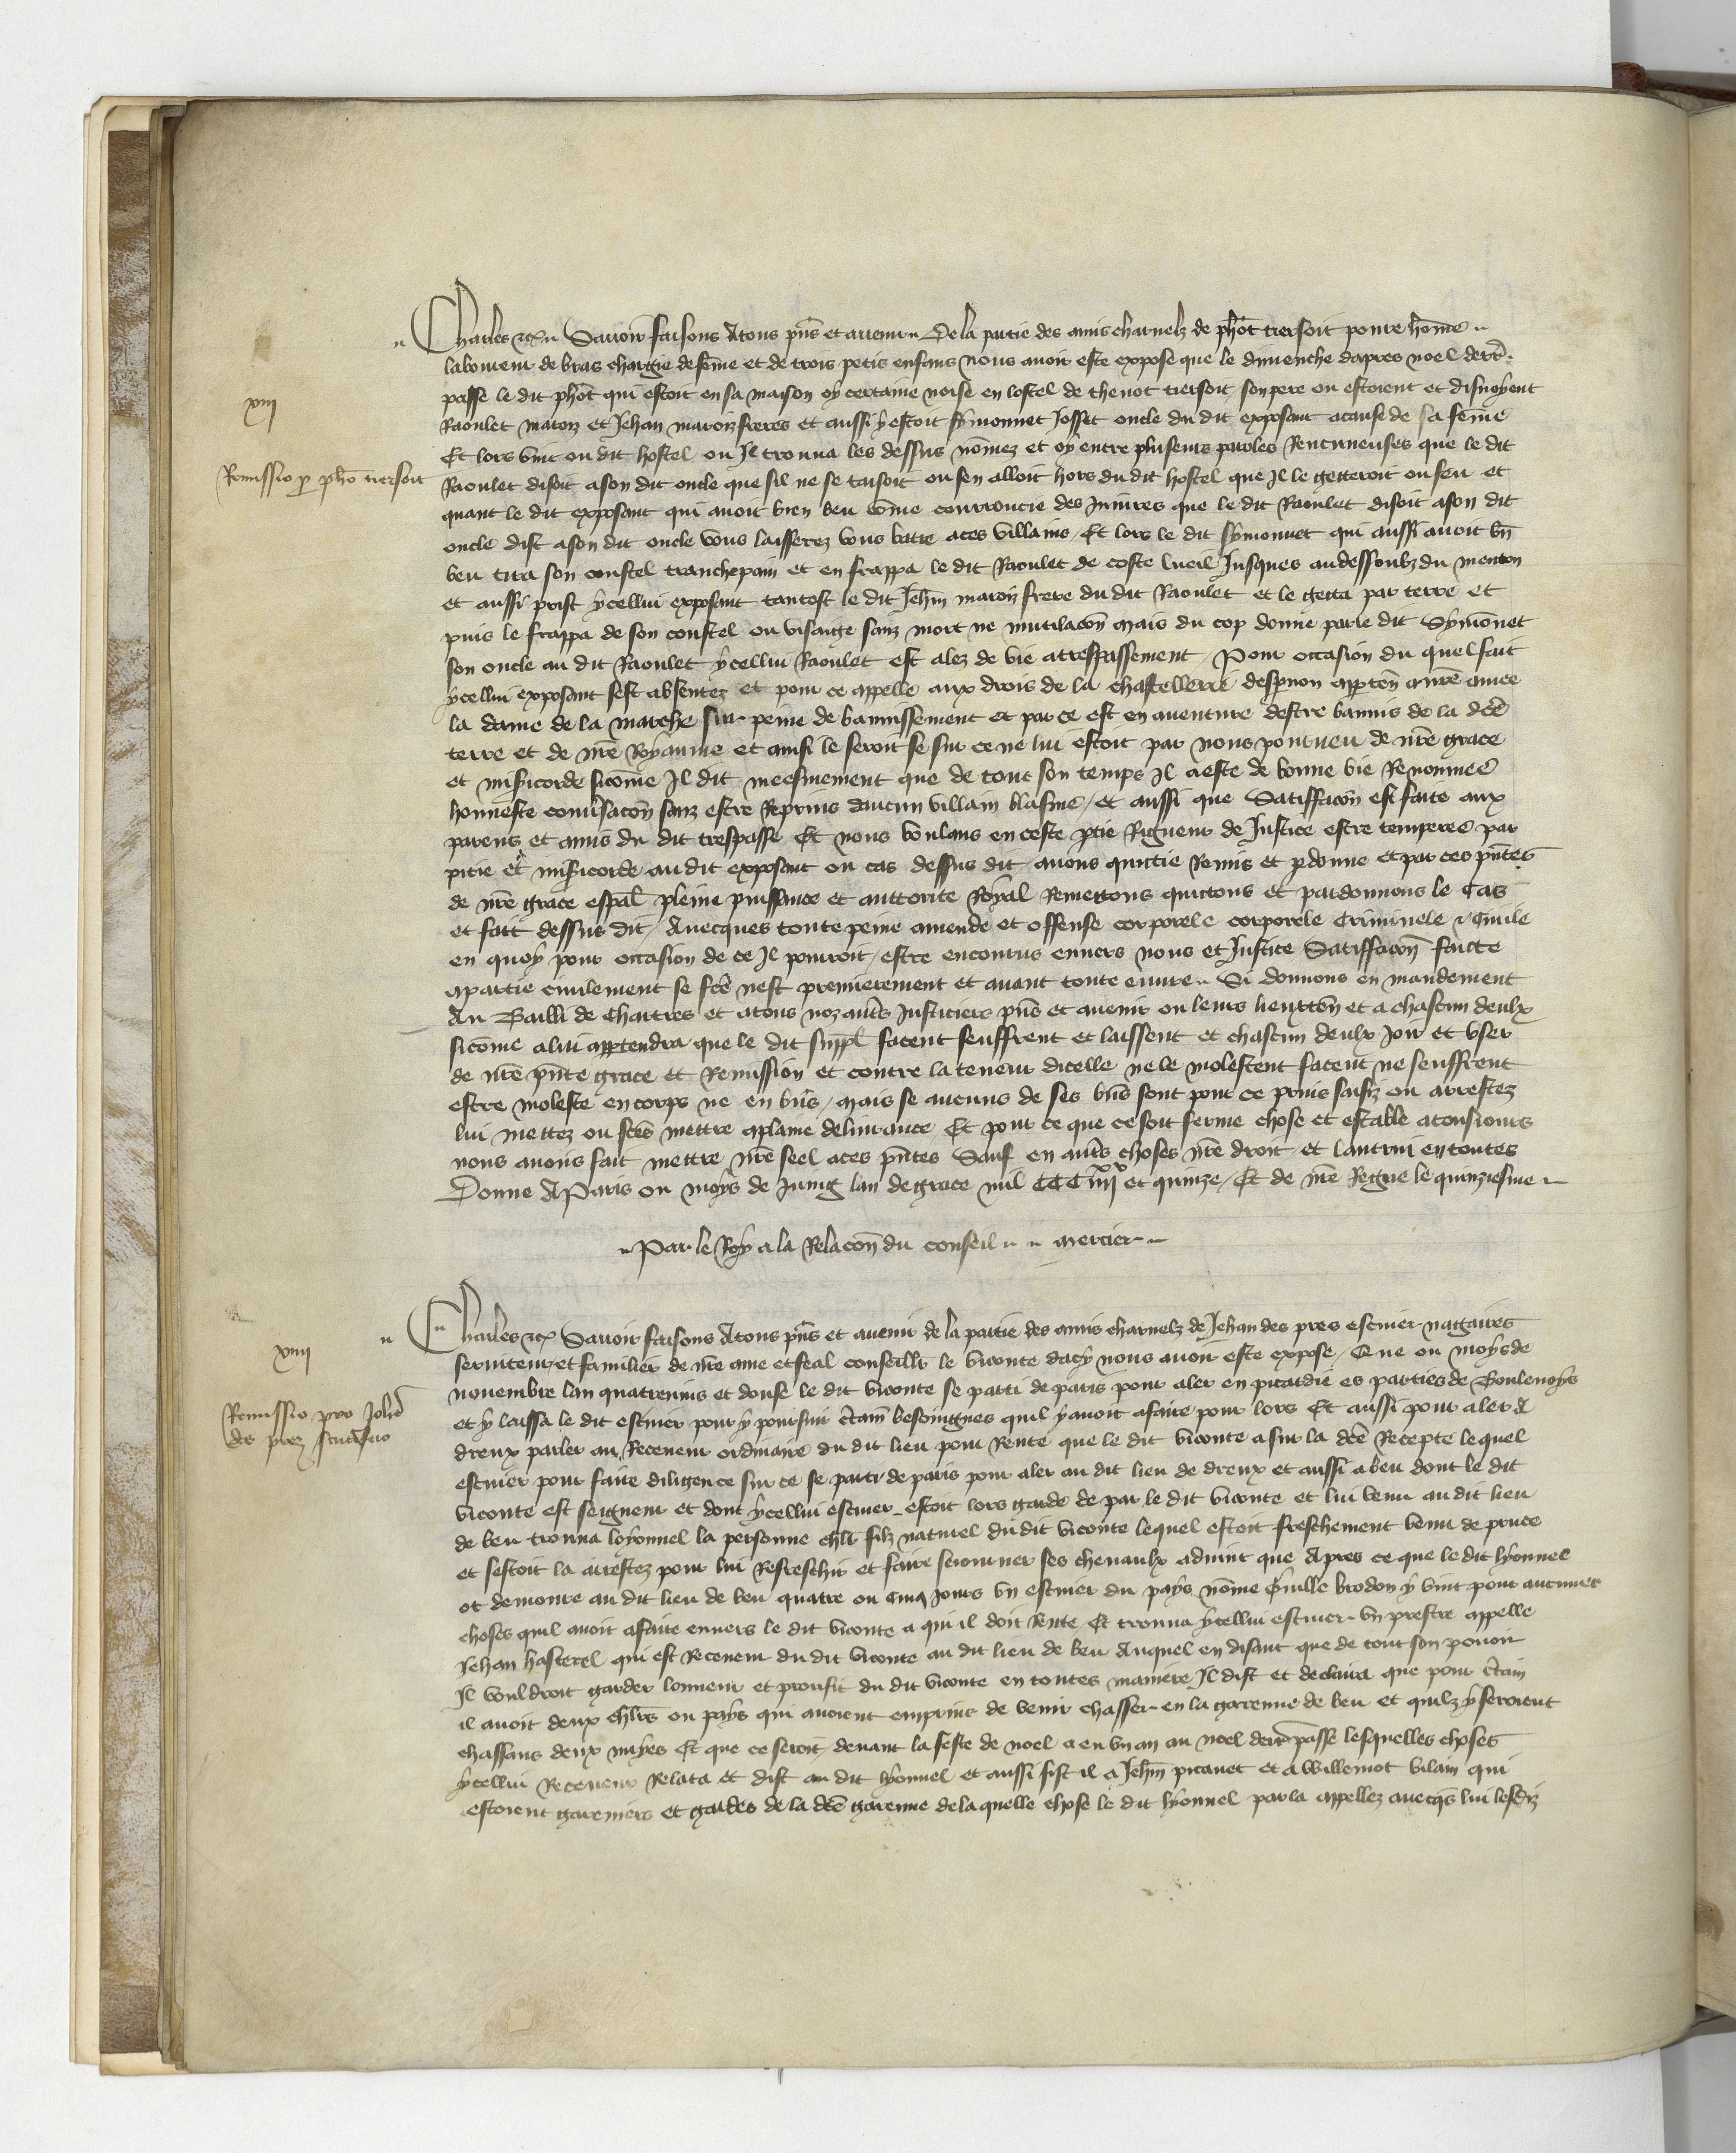 Charles etc. Savoir faisons A tous pñs et avenir. De la partie des amis charnelz de phot tiersoit povre hõme
laboureur de bras chargie de fẽme et de trois petis enfans nous avoir este expose que le dimenche dapres noel derr̃.
passe le dit phot qui estoit en sa maison oy certaine noise en lostel de thenot tiersoit son pere ou estoient et disnoyent
xiij
Raoulet maroiz et Jehan maroiz freres et aussi y estoit symonnet Josset oncle du dit exposant a cause de sa fẽme
Et lors vint ou dit hostel ou Il trouva les dessus nõmez et oy entre pluseurs paroles Rencuneuses que le dit
Remissio p̱ pho tiersoit
Raoulet disoit a son dit oncle que sil ne se taisoit ou sen alloit hors du dit hostel que Il le getteroit ou feu et
quant le dit exposant qui avoit bien beu cõme courroucie des Iniures que le dit Raoulet disoit a son dit
oncle dist a son dit oncle vous laisserez vous batre a ces villains / Et lors le dit symonnet qui aussi avoit bñ
beu tira son coustel tranchepain et en frappa le dit Raoulet de coste lueil Jusques au dessoubz du menton
et aussi prist ycellui exposant tantost le dit Jehñ maroiz frere du dit Raoulet et le getta par terre et
puis le frappa de son coustel ou visaige sanz mort ne mutilacoñ Mais du cop donne par le dit Symõnet
son oncle au dit Raoulet ycellui Raoulet est alez de vie a trespassement / Pour occasion du quel fait
ycellui exposant sest absentez et pour ce appelle aux drois de la chastellerie desp̱non apptẽn a nr̃e amee
la dame de la marche sur peine de bannissement et par ce est en aventure destre bannis de la dc̃e
terre et de nr̃e Royaume et ainsi le seroit se sur ce ne lui estoit par nous pourveu de nr̃e grace
et misericorde sicõme Il dit meesmement que de tout son temps Il a este de bonne vie Renommee
honneste conv̾sacoñ sanz estre Reprins daucun villain blasme / et aussi que Satiffacoñ est faite aux
parens et amis du dit trespasse Et nous voulans en ceste p̱tie Rigueur de Justice estre temperee par
pitie et misericorde au dit exposant ou cas dessus dit avons quictie Remis et p̱donne et par ces pñtes
de nr̃e grace esp̃al pleine puissance et auttorite Royal Remettons quictons et pardonnons le Cas
et fait dessus dit / Avecques toute peine amende et offense corporele corporele Criminele & Civile
en quoy pour occasion de ce Il pourroit / estre encourus envers nous et Justice Satiffacoñ faicte
a partie civilement se fc̃e nest premierement et avant toute euvre. Si donnons en mandement
Au Bailli de Chartres et a tous noz aut̾s Justiciers pñs et avenir ou leurs lieuxteñ et a chascun deulx
sicõme a lui appartendra que le dit suppl̃ facent seuffrent et laissent et chascun deulx Joir et user
de nr̃e pñte grace et Remission et contre la teneur dicelle ne le molestent facent ne seuffrent
estre moleste en corps ne en biẽs / Mais se aucuns de ses biẽs sont pour ce prins saisiz ou arrestez
lui mettez ou fc̃es mettre a plaine delivrance Et pour ce que ce soit ferme chose et estable a tousjours
nous avons fait mettre nr̃e seel a ces pñtes Sauf en aut̾s choses nr̃e droit et lautrui en toutes
Donne A Paris ou moys de Juing lan de grace mil CCC iiijxx et quinze / Et de nr̃e Regne le quinziesme
Par le Roy a la Relacoñ du conseil .. mercier
Charles etc Savoir faisons A tous pñs et avenir de la partie des amis charnelz de Jehan des pres escuier nagaires
xiiij
serviteur et familier de nr̃e ame et feal conseillr̃ le viconte dacy nous avoir este expose / Que ou moys de
novembre lan quatrevins et douse le dit viconte se parti de paris pour aler en picardie es parties de Boulenoys
Remissio pro Johẽ
des prez scutifero
et y laissa le dit escuier pour y poursuir c̾tainẽ besoingnes quil y avoit a faire pour lors Et aussi pour aler A
dreux parler au Receveur ordinaire du dit lieu pour Rente que le dit viconte a sur la dc̃e Recepte lequel
escuier pour faire diligence sur ce se parti de paris pour aler au dit lieu de dreux et aussi a beu dont le dit
viconte est seigneur et dont ycellui escuier estoit lors garde de par le dit viconte et lui venu au dit lieu
de beu trouva loyonnel la personne chl̃r filz naturel du dit viconte lequel estoit freschement venu de pruce
et sestoit la arrestez pour lui Refreschir et faire sejourner ses chevaulx advint que Apres ce que le dit lyonnel
ot demoure au dit lieu de beu quatre ou Cinq Jours un escuier du pays nõme Guille brodon y vint pour aucunes
choses quil avoit a faire envers le dit viconte a qui il doit Rente Et trouva ycellui escuier un prestre appelle
Jehan hasterel qui est Receveur du dit viconte au dit lieu de beu Auquel en disant que de tout son povoir
Il vouldroit garder lonneur et proufit du dit viconte en toutes maniere Il dist et declaira que pour c̾tain
il avoit deux chl̃rs ou pays qui avoient emprins de venir chasser en la garenne de beu et quilz y seroient
chassans deux nuyes Et que ce seroit devant la feste de noel a eu un an au noel derr̃ passe lesquelles choses
ycellui Receveur Relata et dist au dit lyonnel et aussi fist il a Jehñ picavet et a Willemot vilain qui
estoient garenniers et gardes de la dc̃e garenne de laquelle chose le dit lyonnel parla appellez avecq̃s lui lesdiz